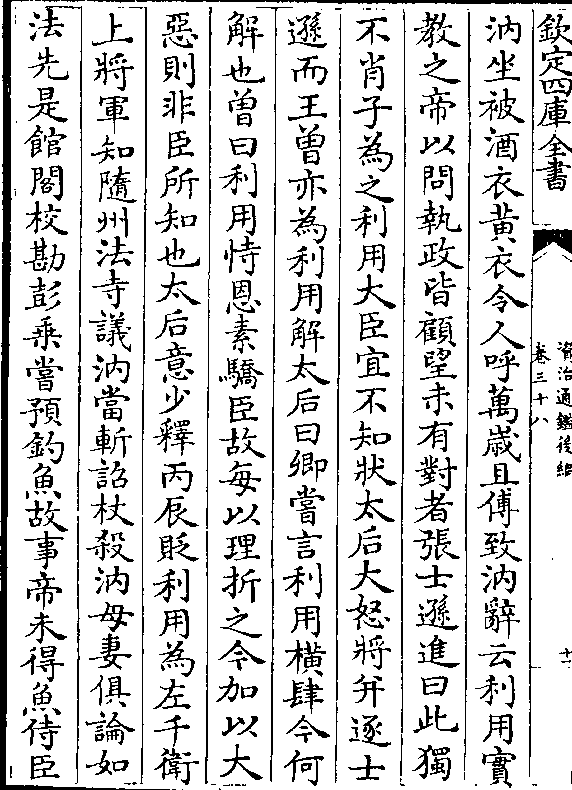 欽定四庫全書
資治通鑑後編
卷三十八
十一
汭坐被酒衣黄衣令人呼萬歳且傅致汭辭云利用實
教之帝以問執政皆顧望未有對者張士遜進曰此獨
不肖子為之利用大臣宜不知狀太后大怒將并逐士
遜而王曾亦為利用解太后曰卿嘗言利用橫肆今何
解也曾曰利用恃恩素驕臣故每以理折之今加以大
惡則非臣所知也太后意少釋丙辰貶利用為左千衛
上將軍知隨州法寺議汭當斬詔杖殺汭母妻俱論如
法先是館閣校勘彭乗嘗預釣魚故事帝未得魚侍臣